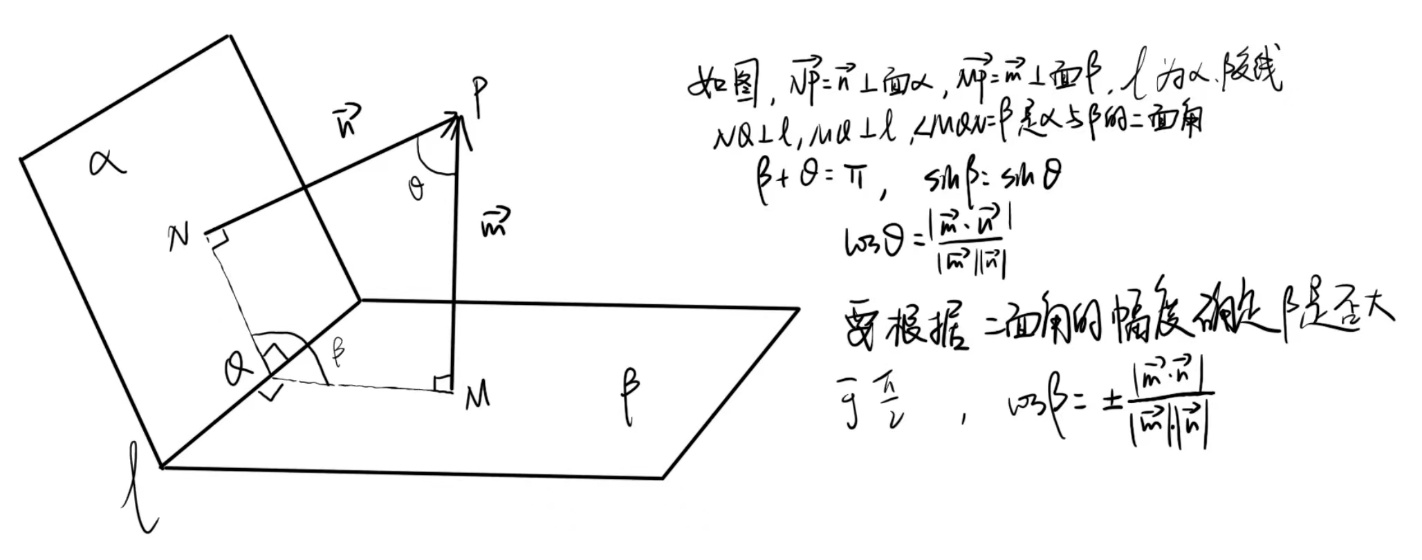 α
n⃗
P
θ
N
m⃗
Q
β
M
β
l
如图, NP⃗=n⃗⊥面α, MP⃗=m⃗⊥面β, l为α.β交线
NQ⊥l, MQ⊥l, ∠MQN=β是α与β的二面角
β+θ=π, sinβ=sinθ
cosθ=|m⃗·n⃗|/|m⃗||n⃗|
要根据二面角的幅度确定β是否大
于π/2, cosβ=±|m⃗·n⃗|/|m⃗|·|n⃗|